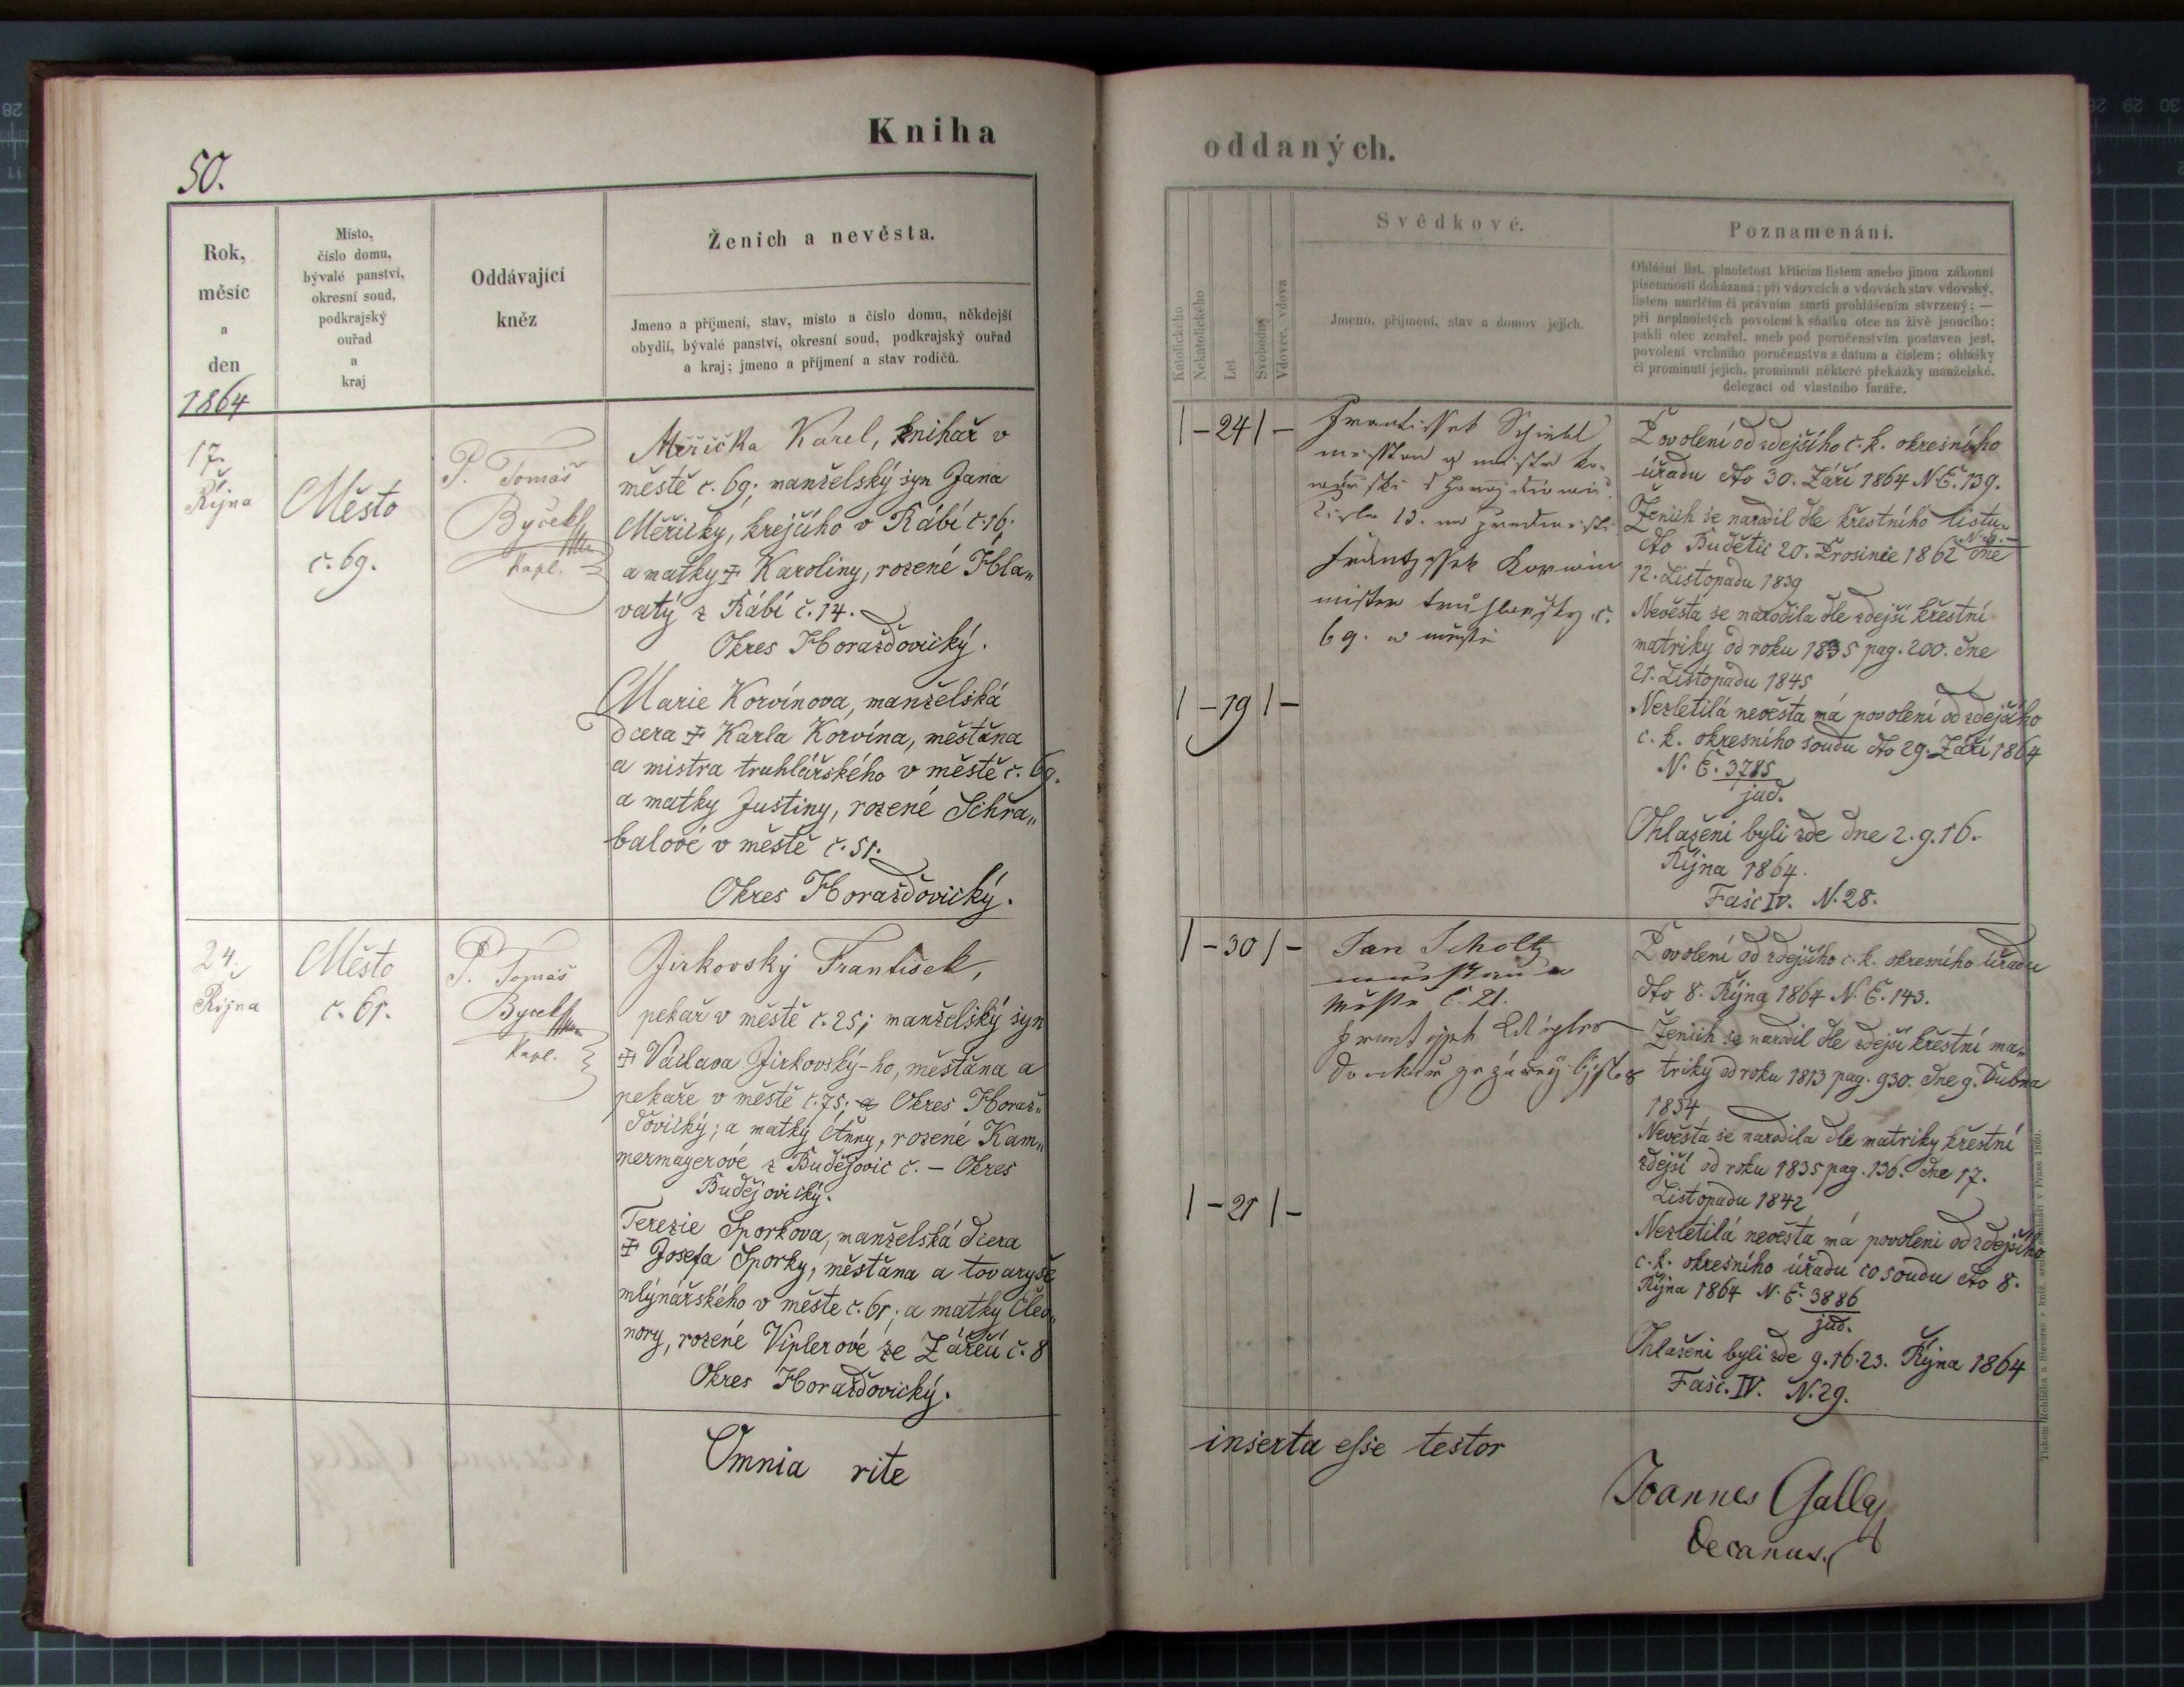 Kniha
50.
Rok,
měsíc
a
den
1864
Místo,
číslo domu,
bývalé panství,
okresní soud,
podkrajský
ouřad
a
kraj
Oddávající
kněz
Ženich a nevěsta.
Jmeno a příjmení, stav, místo a číslo domu, někdejší
obydlí, bývalé panství, okresní soud, podkrajský ouřad
a kraj; jmeno a příjmení a stav rodičů.
17.
Října
Město
č. 69.
P. Tomáš
Byček
Kapl.
Měřička Karel, knihař v
městě č. 69; manželský syn Jana
Měřičky, krejčího v Rábí č. 16;
a matky Karoliny, rozené Hla„
vatý z Rábí č. 14.
Okres Horažďovický.
Marie Korvínova, manželská
dcera Karla Korvína, měšťana
a mistra truhlářského v městě č. 69.
a matky Justiny, rozené Schra„
balové v městě č. 51.
Okres Horažďovický.
24.
Října
Město
č. 61.
P. Tomáš
Byček
Kapl.
Jirkovský František,
pekař v městě č. 25; manželský syn
Václava Jirkovský-ho, měšťana a
pekaře v městě č. 75; Okres Horaž„
ďovický; a matky Anny, rozené Kam„
mermayerové z Budějovic č. – Okres
Budějovický.
Terezie Sporkova, manželská dcera
Josefa Sporky, měšťana a tovaryše
mlýnářského v měste č. 61; a matky Eleo„
nory, rozené Viplerové ze Zářečí č. 8
Okres Horažďovický.
Omnia rite
oddaných.
Katolického
Nekatolického
Let
Svobodný
Vdovec, vdova
Svědkové.
Jmeno, příjmení, stav a domov jejich.
Poznamenání.
Ohlášní list, plnoletost křticím listem anebo jinou zákonní
písemností dokázaná; při vdovcích a vdovách stav vdovský,
listem umrlčím či právním smrti prohlášením stvrzený; —
při neplnoletých povolení k sňatku otce na živě jsoucího;
pakli otec zemřel, aneb pod poručenstvím postaven jest,
povolení vrchního poručenstva s datum a číslem; ohlášky
či prominutí jejich, prominutí některé překážky manželské,
delegací od vlastního faráře.
| – 24 | –
Frantissek
13.
Korwin
mister truhlarsky č.
69. w městě
Povolení od zdejšího č. k. okresního
úřadu dto 30. Září 1864 N. E. 139.
Ženich se narodil dle křestního listu
dto Budětic 20. Prosince 1862 dne
12. Listopadu 1839
Nevěsta se narodila dle zdejší křestní
matriky od roku 1835 pag. 200. dne
21. Listopadu 1845
| – 19 | –
Nezletilá nevěsta má povolení od zdejšího
c. k. okresního soudu dto 29. Září 1864
N. E. 3785
jud.
Ohlášeni byli zde dne 2. 9. 16.
Října 1864.
Fasc IV. N. 28.
| – 30 | –
Jan Scholtz
městě č. 21.
Povolení od zdejšího c. k. okresního úřadu
dto 8. Října 1864 N. E. 143.
Ženich se narodil dle zdejší křestní ma„
triky od roku 1813 pag. 930. dne 9. Dubna
1834
Nevěsta se narodila dle matriky křestní
zdejší od roku 1835 pag. 136. dne 17.
Listopadu 1842
| – 21 | –
Nezletilá nevěsta má povoleni od zdejšího
c. k. okresního úřadu co soudu dto 8.
Října 1864 N. E. 3886
jud.
Ohlášeni byli zde 9. 16. 23. Října 1864
Fasc. IV. N. 29.
inserta esse testor
Joannes Gally
Decanus.